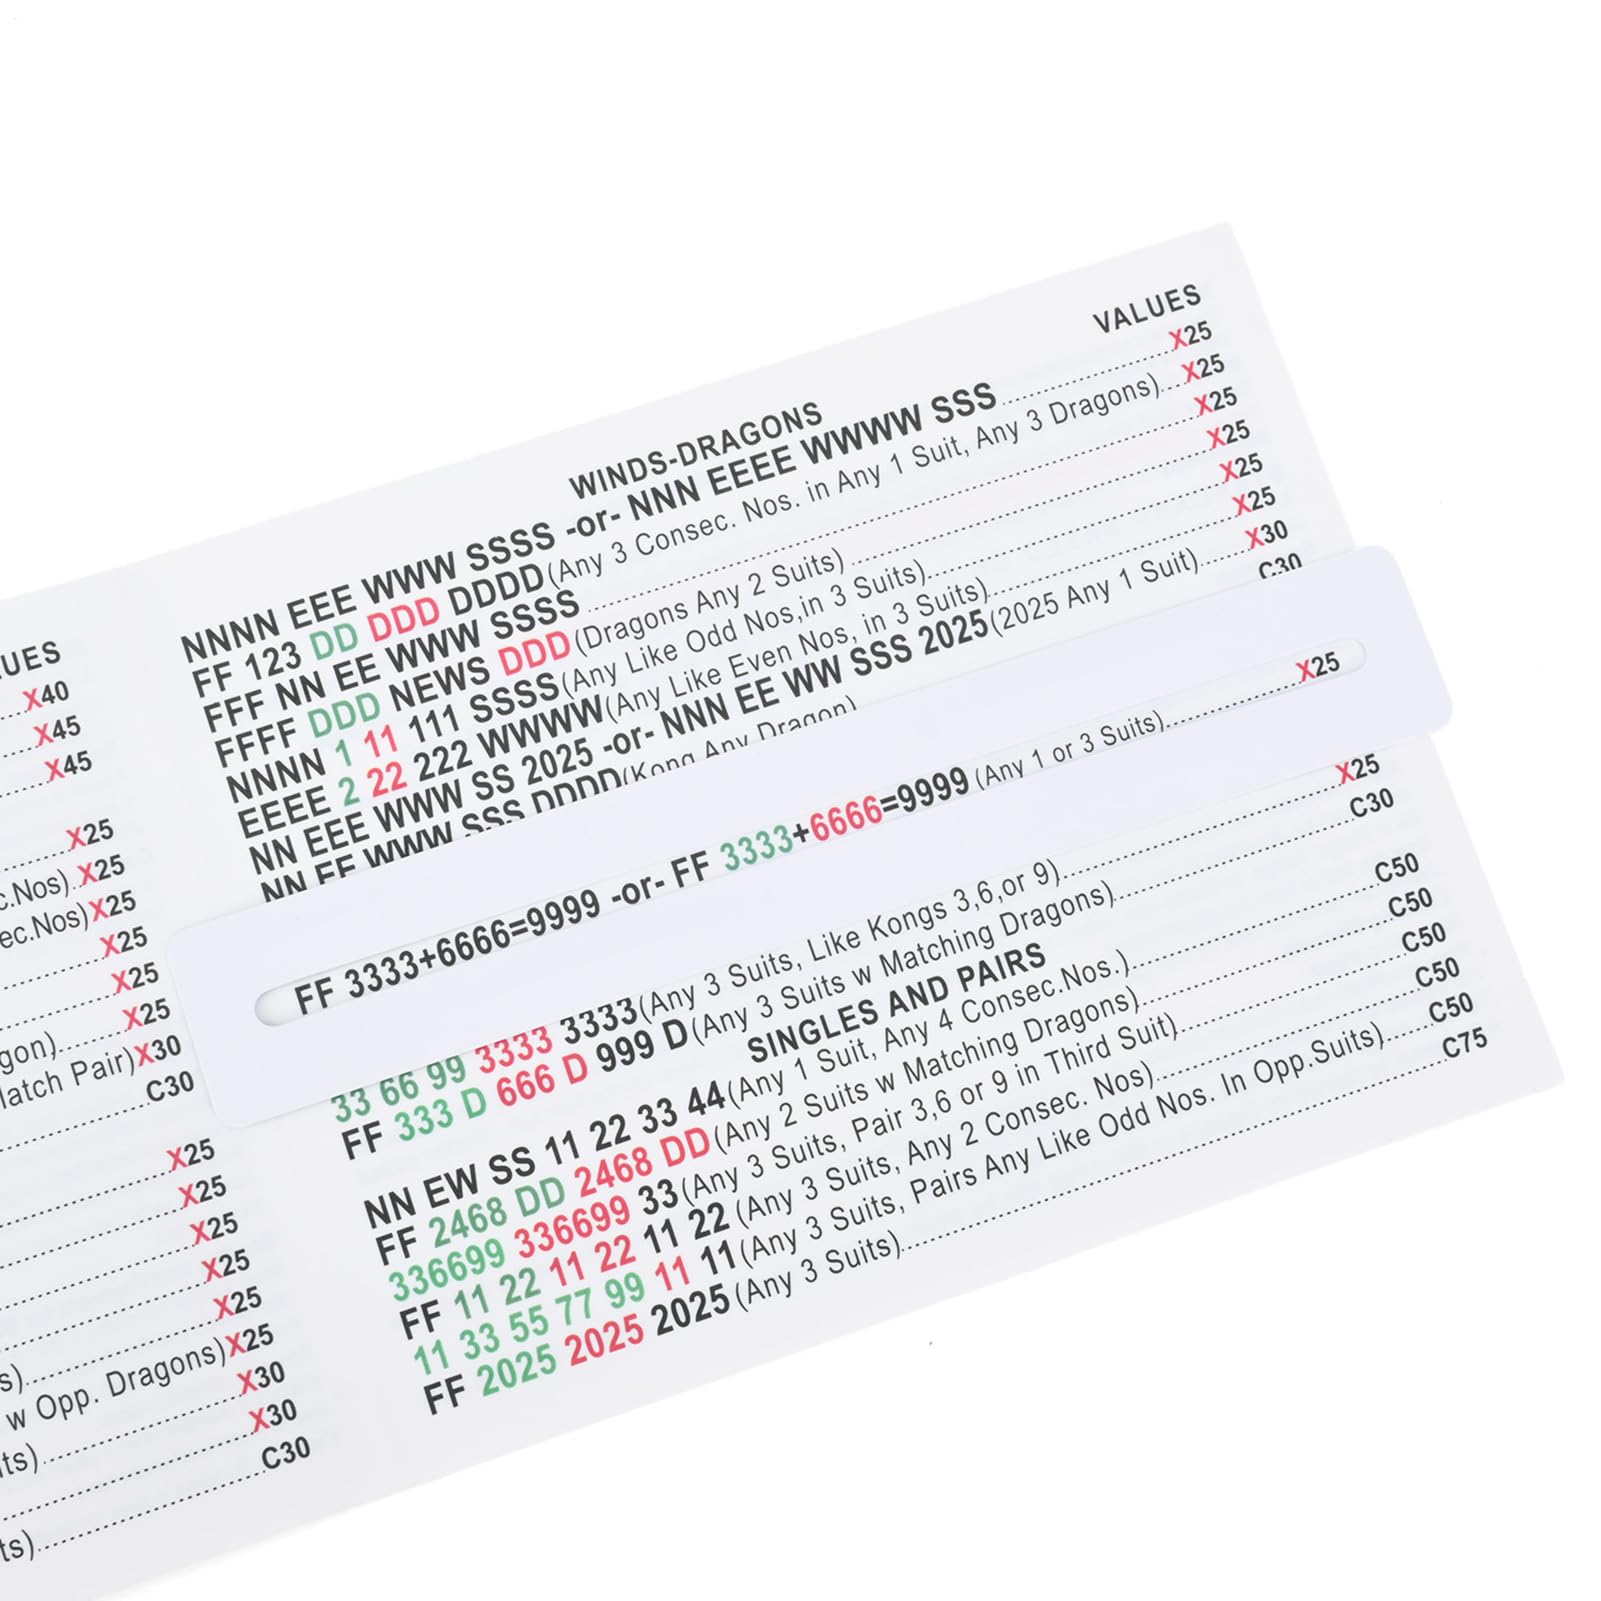 UES
X40
X45
X45
X25
c.Nos)..X25
ec.Nos)X25
X25
X25
gon)..........X25
Match Pair)X30
C30
X25
X25
X25
X25
s)..........X25
w Opp. Dragons)X25
ts)..........X30
X30
ts)..........C30
VALUES
WINDS-DRAGONS
NNNN EEE WWW SSSS -or- NNN EEEE WWWW SSS..........X25
FF 123 DD DDD DDDD(Any 3 Consec. Nos. in Any 1 Suit, Any 3 Dragons)....X25
FFF NN EE WWW SSSS..........X25
FFFF DDD NEWS DDD(Dragons Any 2 Suits)..........X25
NNNN 1 11 111 SSSS(Any Like Odd Nos,in 3 Suits)..........X25
EEEE 2 22 222 WWWW(Any Like Even Nos, in 3 Suits)..........X25
NN EEE WWW SS 2025 -or- NNN EE WW SSS 2025(2025 Any 1 Suit)......X30
NN EE WWW SSS DDDD(Kong Any Dragon) C30
FF 3333+6666=9999 -or- FF 3333+6666=9999 (Any 1 or 3 Suits)..........X25
33 66 99 3333 3333(Any 3 Suits, Like Kongs 3,6,or 9)..........X25
FF 333 D 666 D 999 D(Any 3 Suits w Matching Dragons)..........C30
SINGLES AND PAIRS
NN EW SS 11 22 33 44(Any 1 Suit, Any 4 Consec.Nos.)..........C50
FF 2468 DD 2468 DD(Any 2 Suits w Matching Dragons)..........C50
336699 336699 33(Any 3 Suits, Pair 3,6 or 9 in Third Suit)..........C50
FF 11 22 11 22 11 22 (Any 3 Suits, Any 2 Consec. Nos)..........C50
11 33 55 77 99 11 11(Any 3 Suits, Pairs Any Like Odd Nos. In Opp.Suits)......C50
FF 2025 2025 2025(Any 3 Suits)..........C75